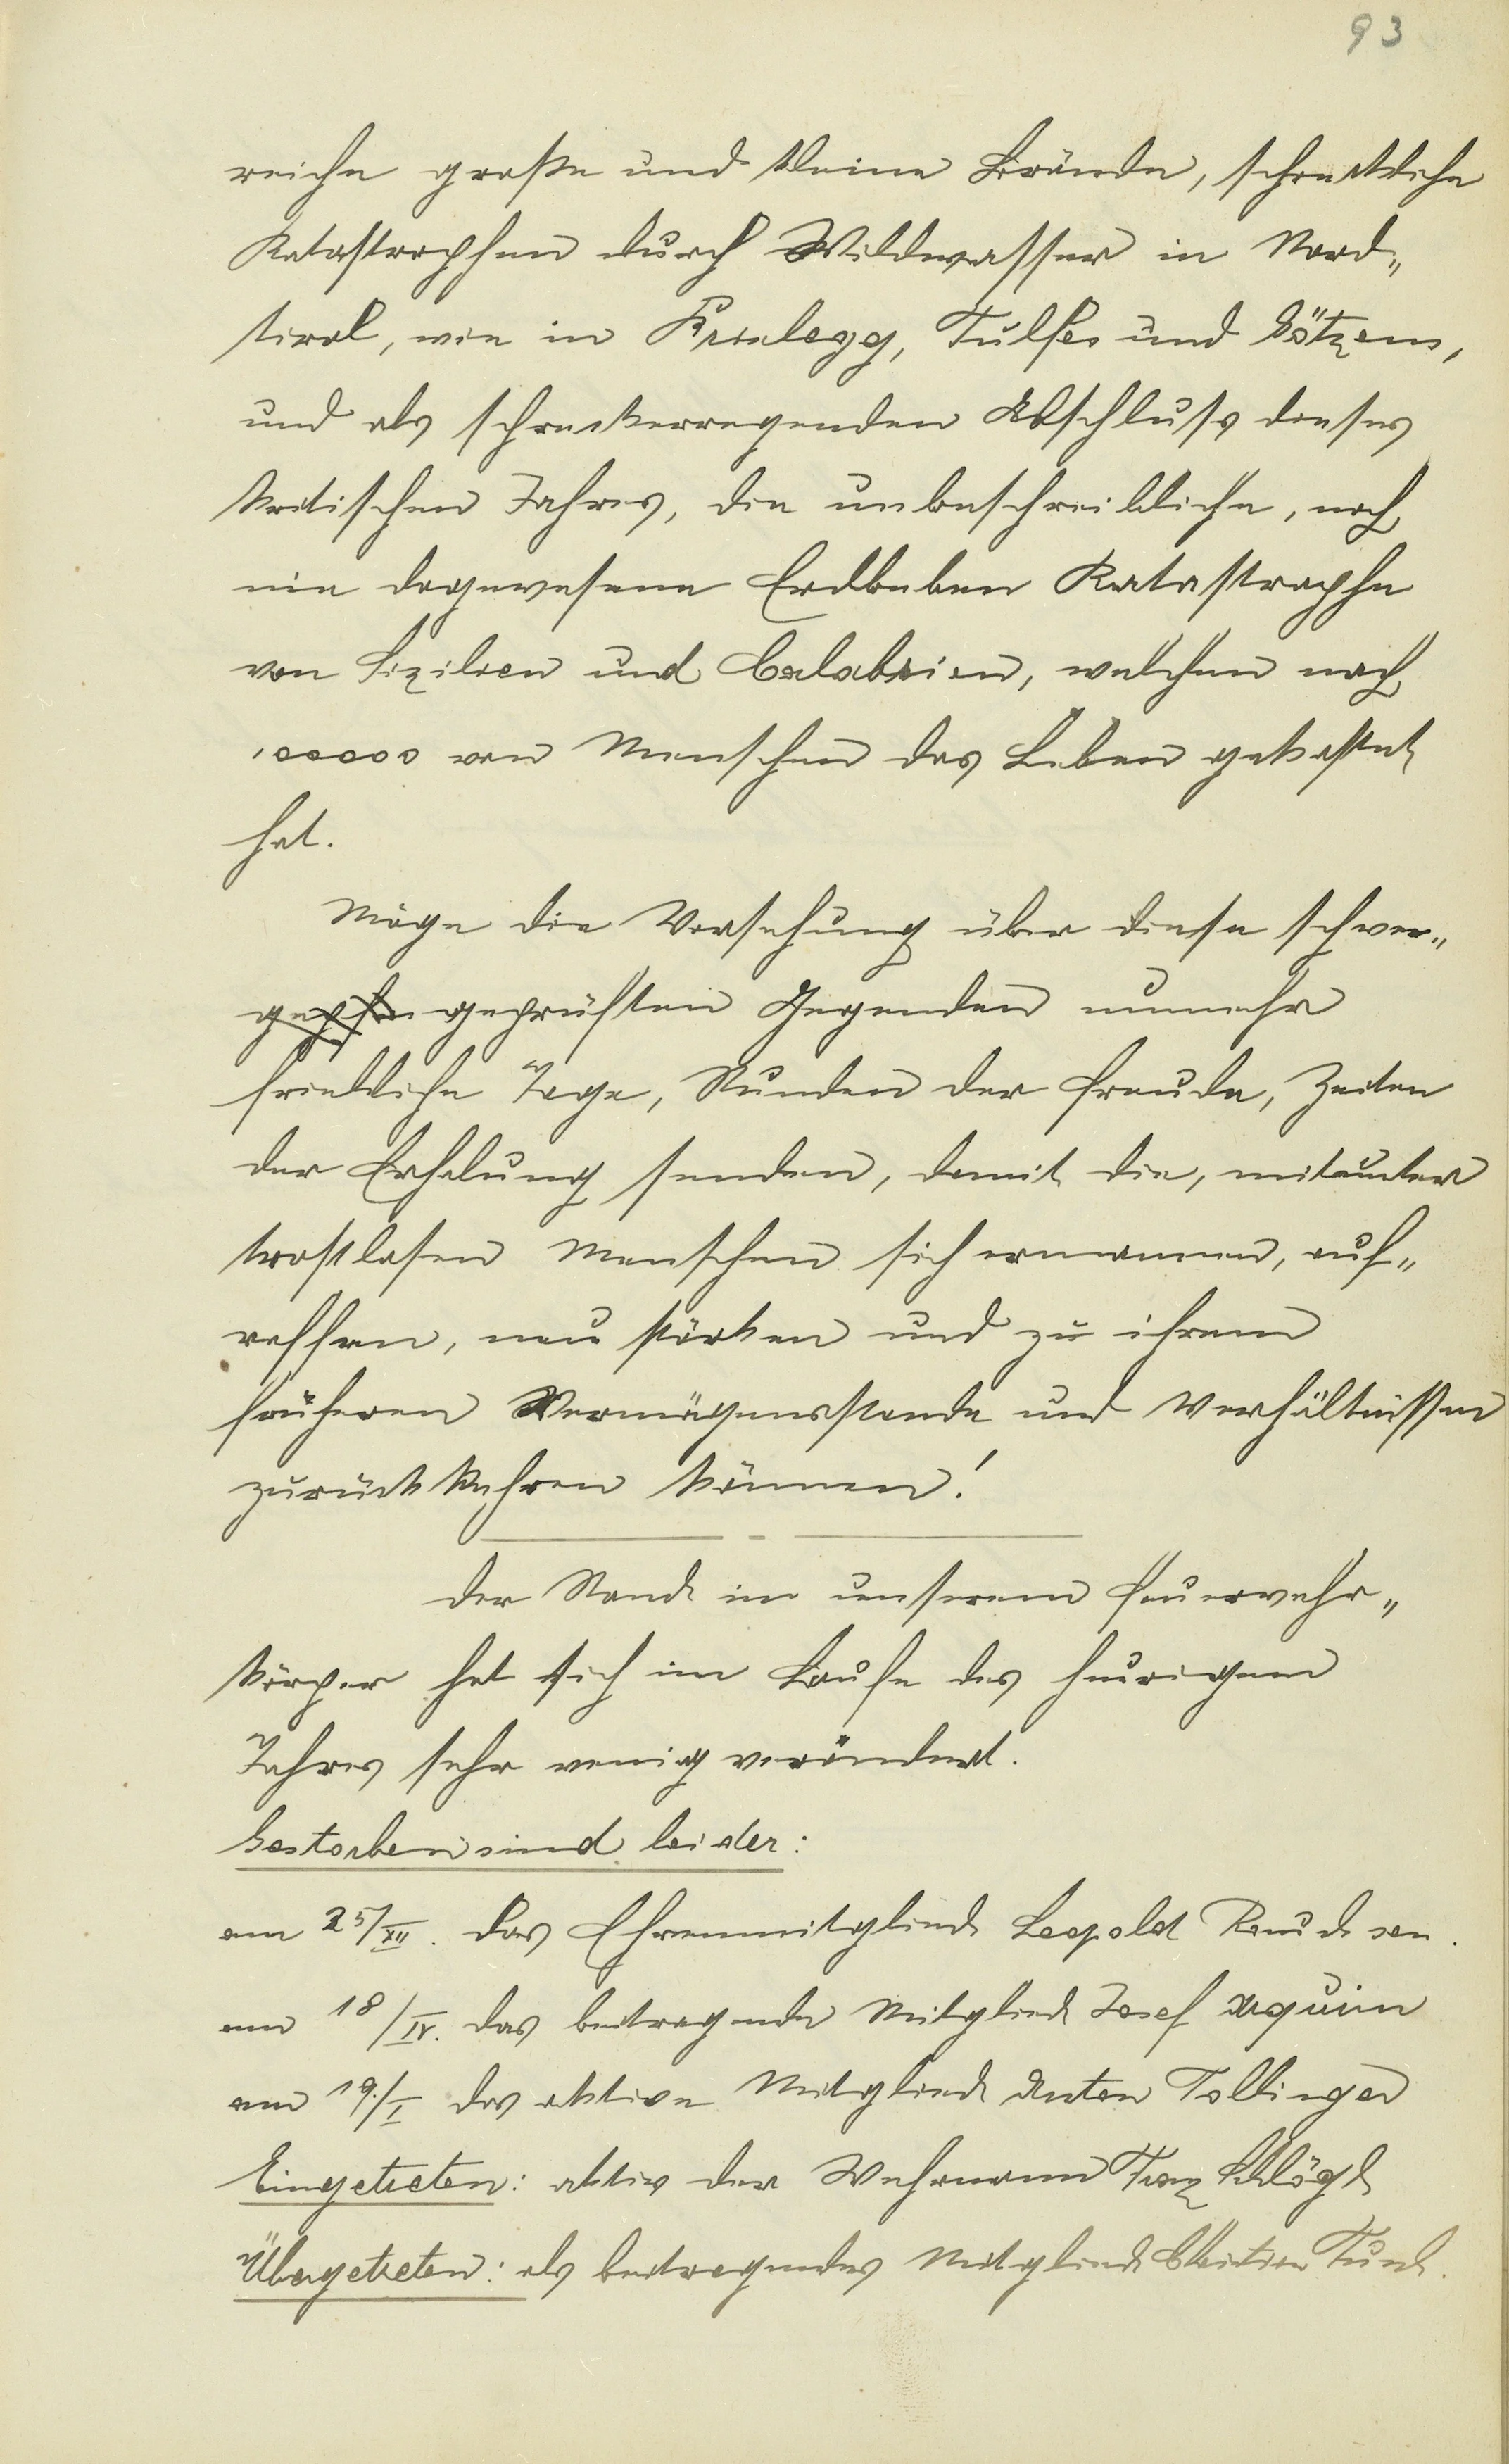 93
reiche große und kleine Brände, schreckliche
Katastrophen durch Wildwasser in Nord„
tirol, wie in Brixlegg, Tulfes und Götzens,
und als schreckerregenden Abschluss dieses
kritischen Jahres, die unbeschreibliche, noch
nie dagewesene Erdbeben Katastrophe
von Sizilien und Calabrien, welchen nach
100000 von Menschen das Leben gekostet
hat.
Möge die Vorsehung über diese schwer„
geprüften Gegenden nunmehr
friedliche Tage, Stunden der Freude, Zeiten
der Erholung senden, damit die, mitunter
trostlosen Menschen sich ermannen, auf„
raffen, neu stärken und zu ihrem
früheren Vermögensstande und Verhältnissen
zurückkehren können!
Der Stand in unserem Feuerwehr„
körper hat sich im Laufe des heurigen
Jahres sehr wenig verändert.
Gestorben sind leider:
am 25/XII. das Ehrenmitglied Leopold sen.
am 18/IV. das beitragende Mitglied Josef
am 19./I das aktive Mitglied Anton Tollinger
Eingetreten: aktiv der Wehrmann Franz Schlögl
Übergetreten: als beitragendes Mitglied